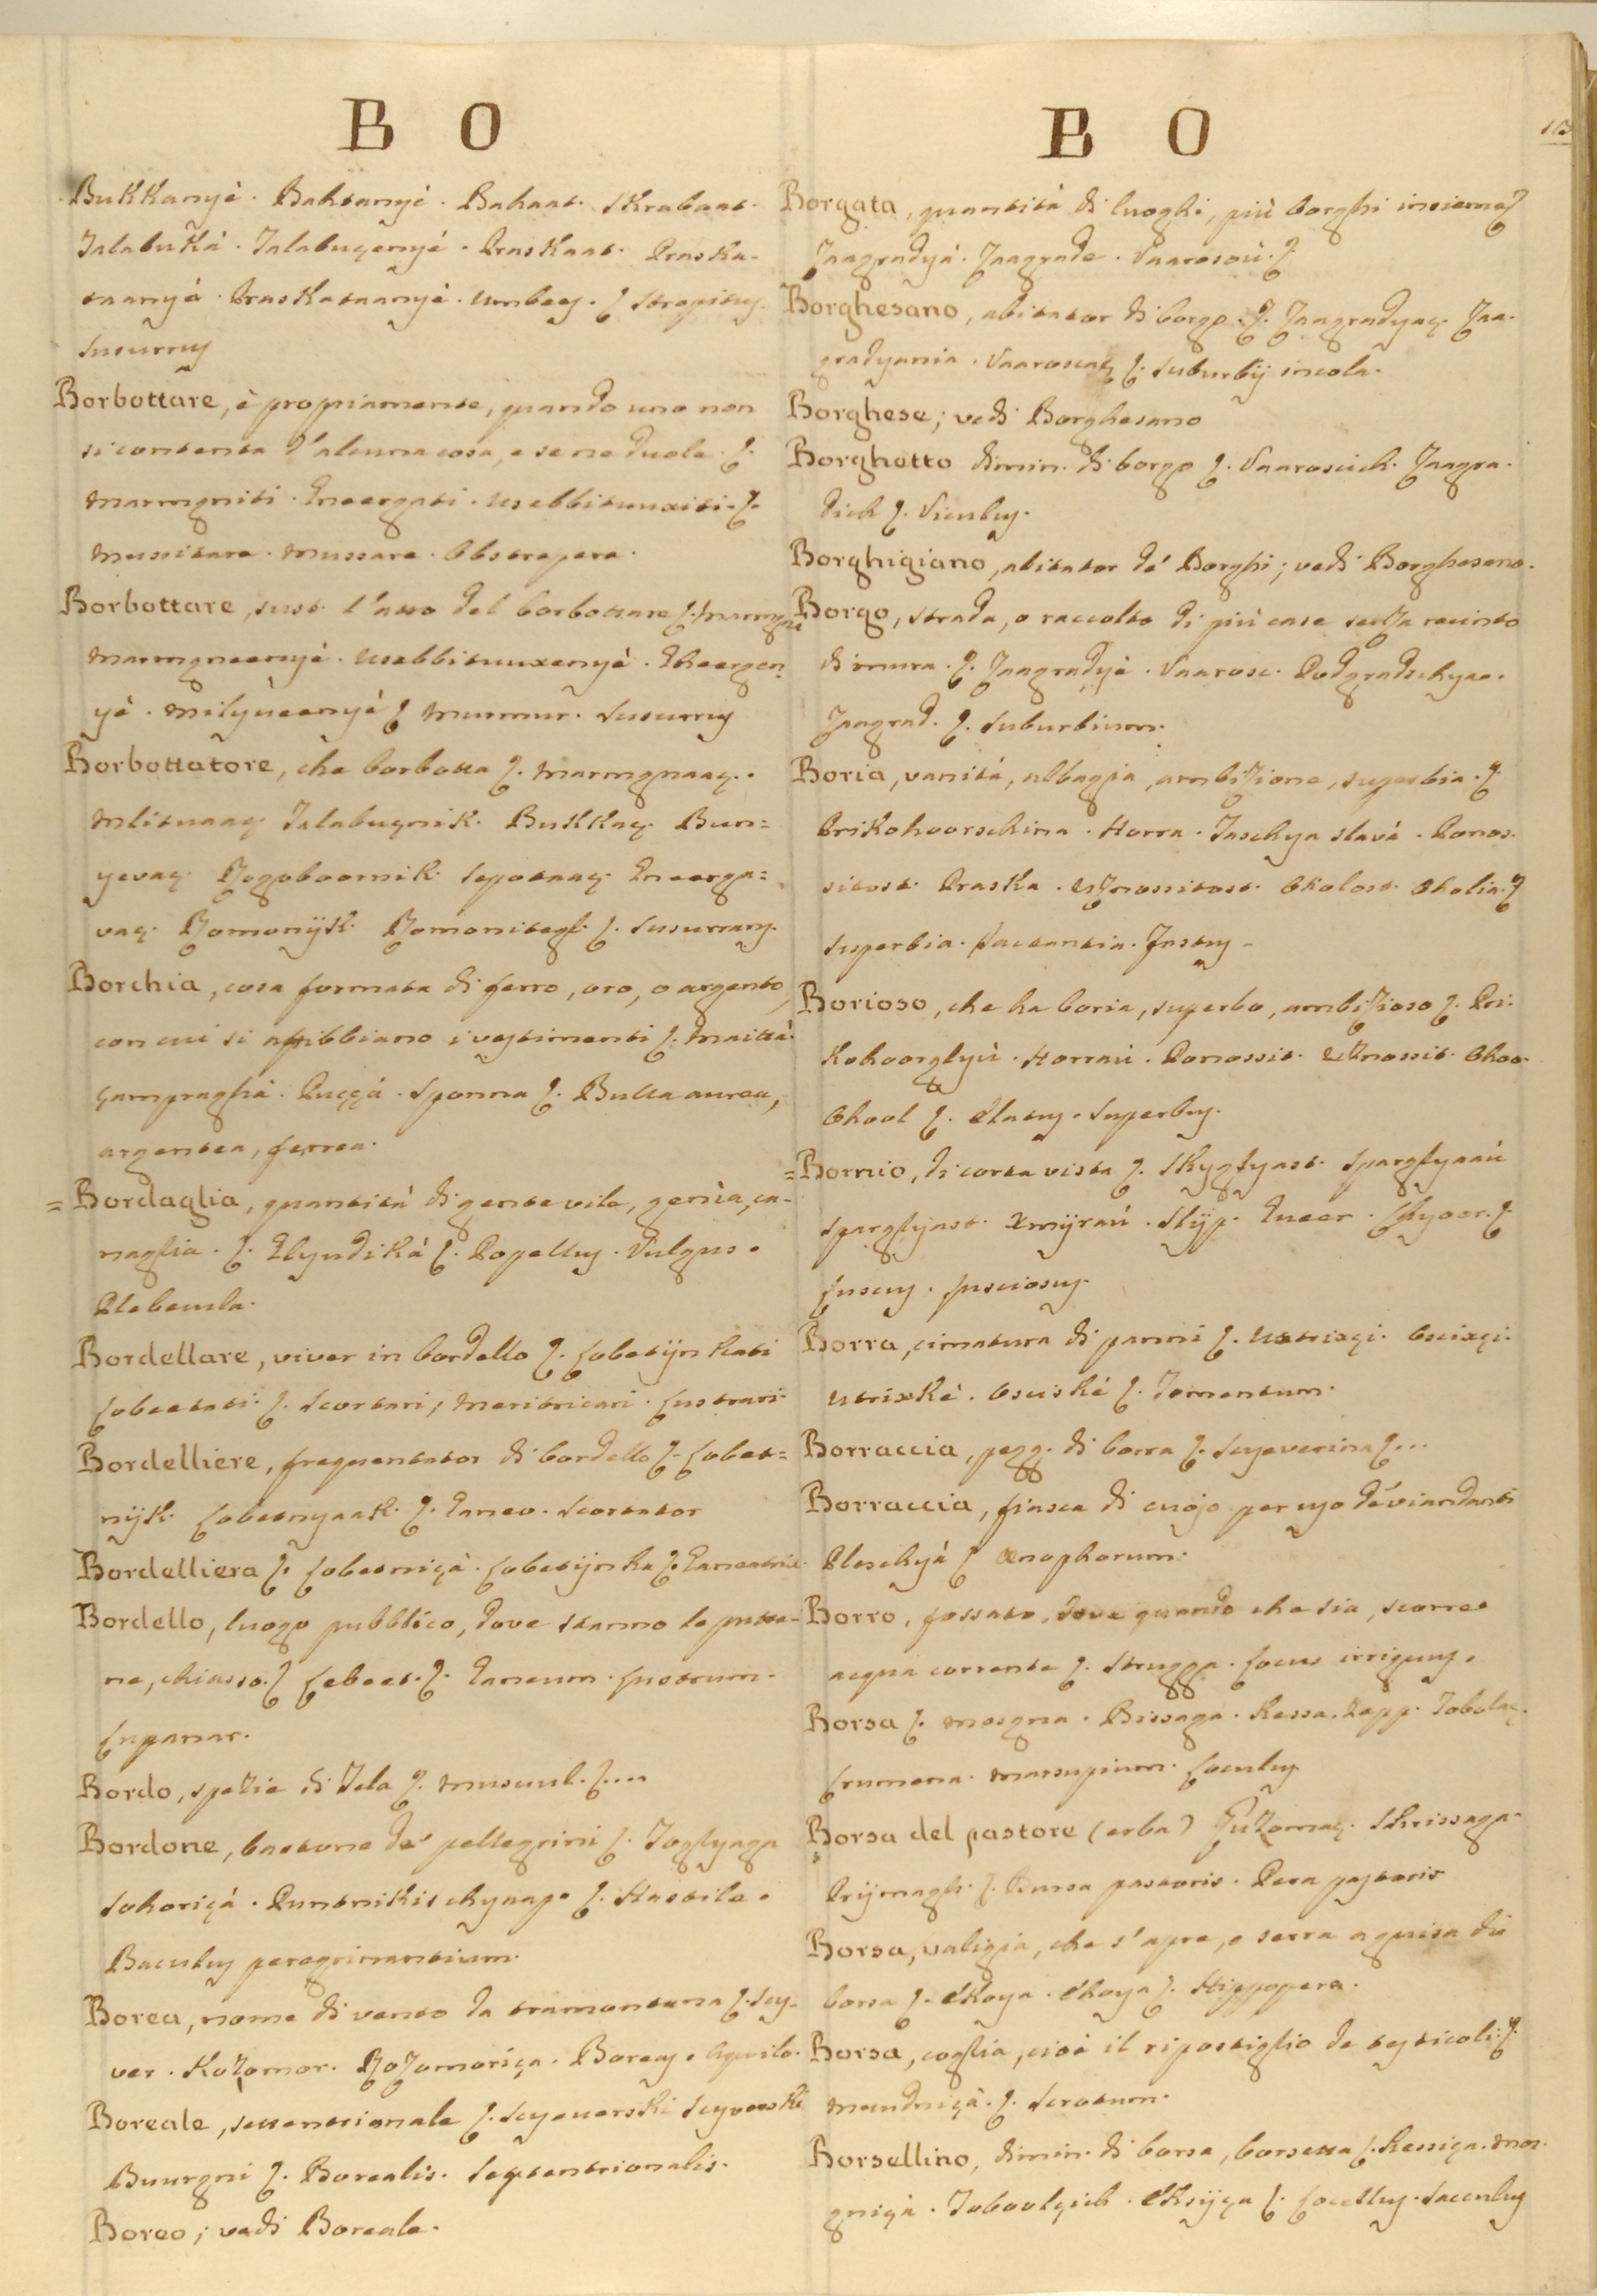 B O
Bukkanyè. Bahtanyè. Bahaat. Skrabaat.
Talabukà. Talabuçenyè. Praskaat. Praska-
taanyà. Praskataanyè. Umbey. ſ. Strepituy.
Susurruy
Borbottare, è propiamente, quando uno non
si contenta d'alcuna cosa, e se ne duole. ſ.
Marmgniti. Ineergati. Usebbitunxiti. ſ.
Mussitare. Mussare. Obstrepere.
Borbottare, sust. l'atto del borbottare ſ.
Marmgneenyè. Usebbituuxenyè.
yè. Milyueenyè ſ. Murmur. Susurruy
Borbottatore, che borbotta ſ. Marmgnaaç.
Mlitvaaç Talabuçnik. Bukkaç. Bun=
yevaç. Sepotaaç. Ineerga=
vaç. ſ. Susurrany.
Borchia, cosa formata di ferro, oro, o argento,
con cui si affibbiano i vestimenti ſ. Maittà.
Puççà. Sponna ſ. Bulla aurea,
argentea, ferrea.
= Bordaglia, quantità di gente vile, genìa, ca-
naglia. ſ. Plyudikà ſ. Popelluy. Vulgus.
Plebecula.
Bordellare, viver in bordello ſ. Lobetijnkati
Lobeetati. ſ. Scortari, Meritricari. Lustrari.
Bordelliere, frequentator di bordello ſ. Lobet=
nijk. Lobetnyaak. ſ. Ganeo. Scortator
Bordelliera ſ. Lobetniçà. Lobetijnka ſ.
Bordello, luogo pubblico, dove stanno le putta-
ne, chiasso. ſ. Lobeet. ſ. Ganeum. Lustrum.
Lupanar.
Bordo, spezie di Tela ſ. Musuul. ſ....
Bordone, bastone de' pellegrini ſ. Toglyaga
Sohoriçà. ſ. Hastile.
Baculuy peregrinantium.
Borea, nome di vento da tramontana ſ. Sey-
ver. Kozomor. Kozomoriça. Boreay. Aquilo.
Boreale, settentrionale ſ. Seyeverski
Buurgni ſ. Borealis. Septentrionalis.
Boreo; vedi Boreale.
B O
Borgata, quantità di luoghi, più borghi insieme ſ.
Zaagradyà. Zaagrade. Vaarosoù. ſ.
Borghesano, abitator di borgo. ſ. Zaagradyaç Zaa-
gradyania. Vaaroscaç ſ. Suburbij incola.
Borghese; vedi Borghesano
Borghetto dimin. di borgo ſ. Vaaroscich. Zaagra-
dich ſ. Viculuy.
Borghigiano, abitator de' Borghi; vedi Borghesano.
Borgo, strada, o raccolto di più case senza recinto
di mura. ſ. Zaagradyè. Vaarosc. Podgradschyae.
Zaagrad. ſ. Suburbium.
Boria, vanità, albagia, ambizione, superbia. ſ.
Prikohoorschina. Horra. Taschya slavà. Ponos-
sitost. Praska. Uznossitost. Oholost. Oholia. ſ
Superbia. Jactantia. Fastuy.
Borioso, che ha boria, superbo, ambizioso ſ. Pri-
kohoorglyù. Horraù. Ponossit. Uznossit. Ohoo.
Ohool ſ. Elatuy. Superbuy.
= Bornio, di corta vista ſ. Skyglyast. Sparglyaaù
Sparglyast. Xmijraù. Slijp. ſ.
Luscuy. Lusciosuy.
Borra, cimatura di panni ſ. Ustrixçi. Oscixçi.
Ustrixkè. Osciskè ſ. Tomentum.
Borraccia, pegg. di borra ſ. Seyeverina ſ...
Borraccia, fiasca di cuojo per uso de' viandanti
Ploschyà ſ. Œnophorum.
Borro, fossato, dove quando che sia, scorre
acqua corrente ſ. Strugga. Locus irriguuy.
Borsa ſ. Mosgna. Bissaga. Kessa. Xepp. Tobolaç.
Crumena. Marsupium. Loculuy
Borsa del pastore (erba)
ſ. Bursa pastoris. Pera pastoris
Borsa, valigia, che s'apre, e serra a guisa di
borsa ſ. Ekoya. Ekoya ſ. Hippopera.
Borsa, coglia, cioè il ripostiglio de testicoli. ſ.
Mundniçà. ſ. Scrotum.
Borsellino, dimin. di borsa, borsetta ſ. Kessiça. Mos-
gniçà. Toboolçich. Eksijça ſ. Locelluy. Sacculuy